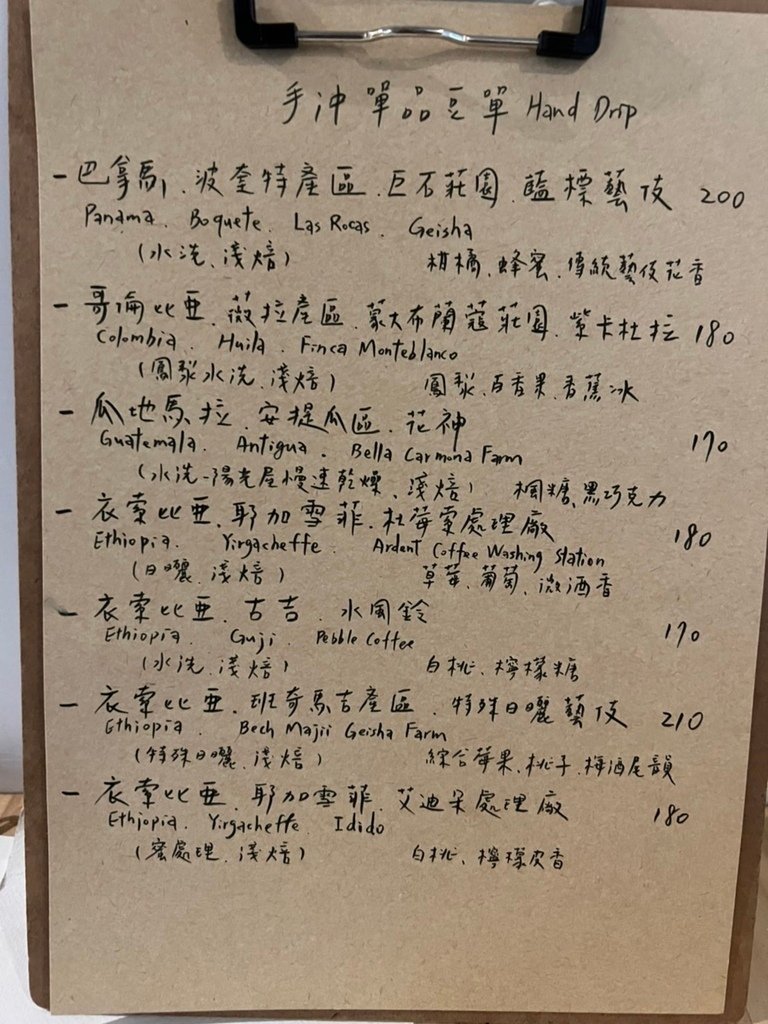 手沖單品豆單 Hand Drip
- 巴拿馬、波奎特產區、巨石莊園、藍標藝伎 200
Panama. Boquete. Las Rocas. Geisha
(水洗、淺焙) 柑橘、蜂蜜、傳統藝伎花香
- 哥倫比亞、薇拉產區、蒙大布蘭蔻莊園、紫卡杜拉 180
Colombia. Huila. Finca Monteblanco
(鳳梨水洗、淺焙) 鳳梨、百香果、香蕉冰
- 瓜地馬拉、安提瓜區、花神 170
Guatemala. Antigua. Bella Carmona Farm
(水洗-陽光屋慢速乾燥、淺焙) 楓糖、黑巧克力
- 衣索比亞、耶加雪菲、杜莓索處理廠 180
Ethiopia. Yirgacheffe. Ardent Coffee Washing Station
(日曬、淺焙) 草莓、葡萄、微酒香
- 衣索比亞、古吉、水風鈴 170
Ethiopia. Guji. Pebble Coffee
(水洗、淺焙) 白桃、檸檬糖
- 衣索比亞、班奇馬吉產區、特殊日曬藝伎 210
Ethiopia. Bech Majii Geisha Farm
(特殊日曬、淺焙) 綜合莓果、桃子、梅酒尾韻
- 衣索比亞、耶加雪菲、艾迪朵處理廠 180
Ethiopia. Yirgacheffe. Idido
(蜜處理、淺焙) 白桃、檸檬皮香